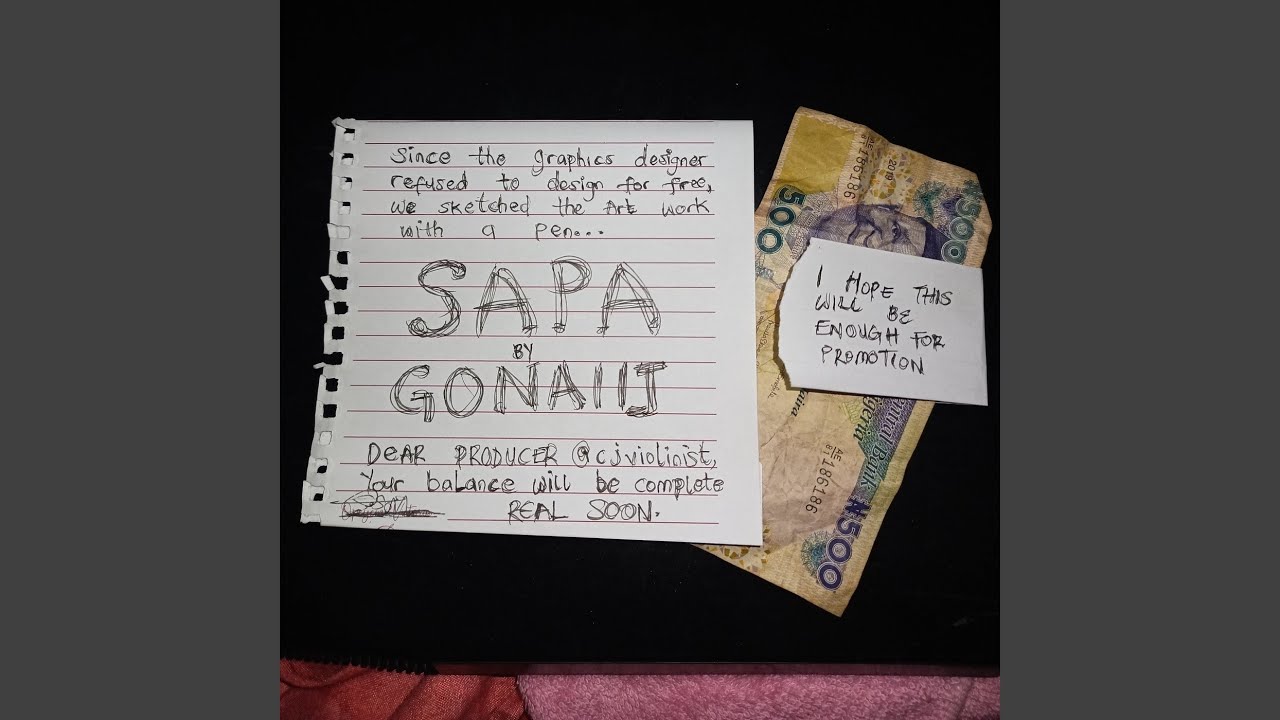 Since the graphics designer
refused to design for free,
we sketched the Art work
with a pen...
SAPA
BY
GONAIIJ
DEAR PRODUCER @cjviolinist,
Your balance will be complete
REAL SOON.
500
AE/81 186186
2019
500
I HOPE THIS
WILL BE
ENOUGH FOR
PROMOTION
Naira
Central Bank
Nigeria
AE/81 186186
₦500